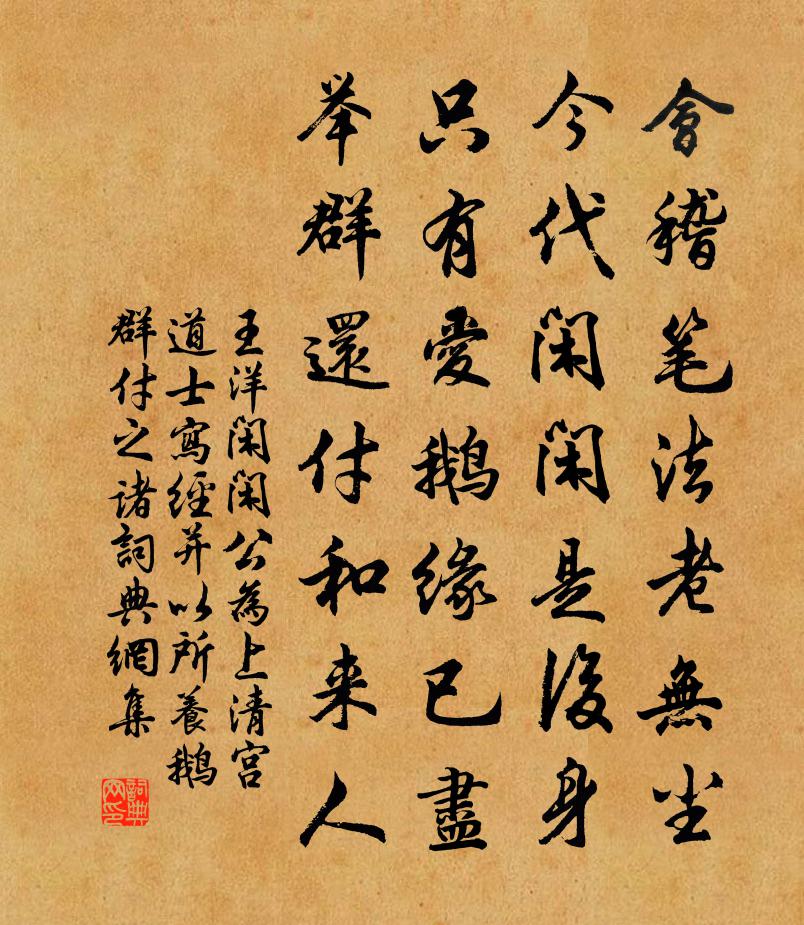 會稽笔法老無尘
今代闲闲是後身
只有愛鵝緣已盡
举群還付和来人
王洋闲闲公為上清宫
道士寫經并以所養鵝
群付之诸詞典網集
詞典网印